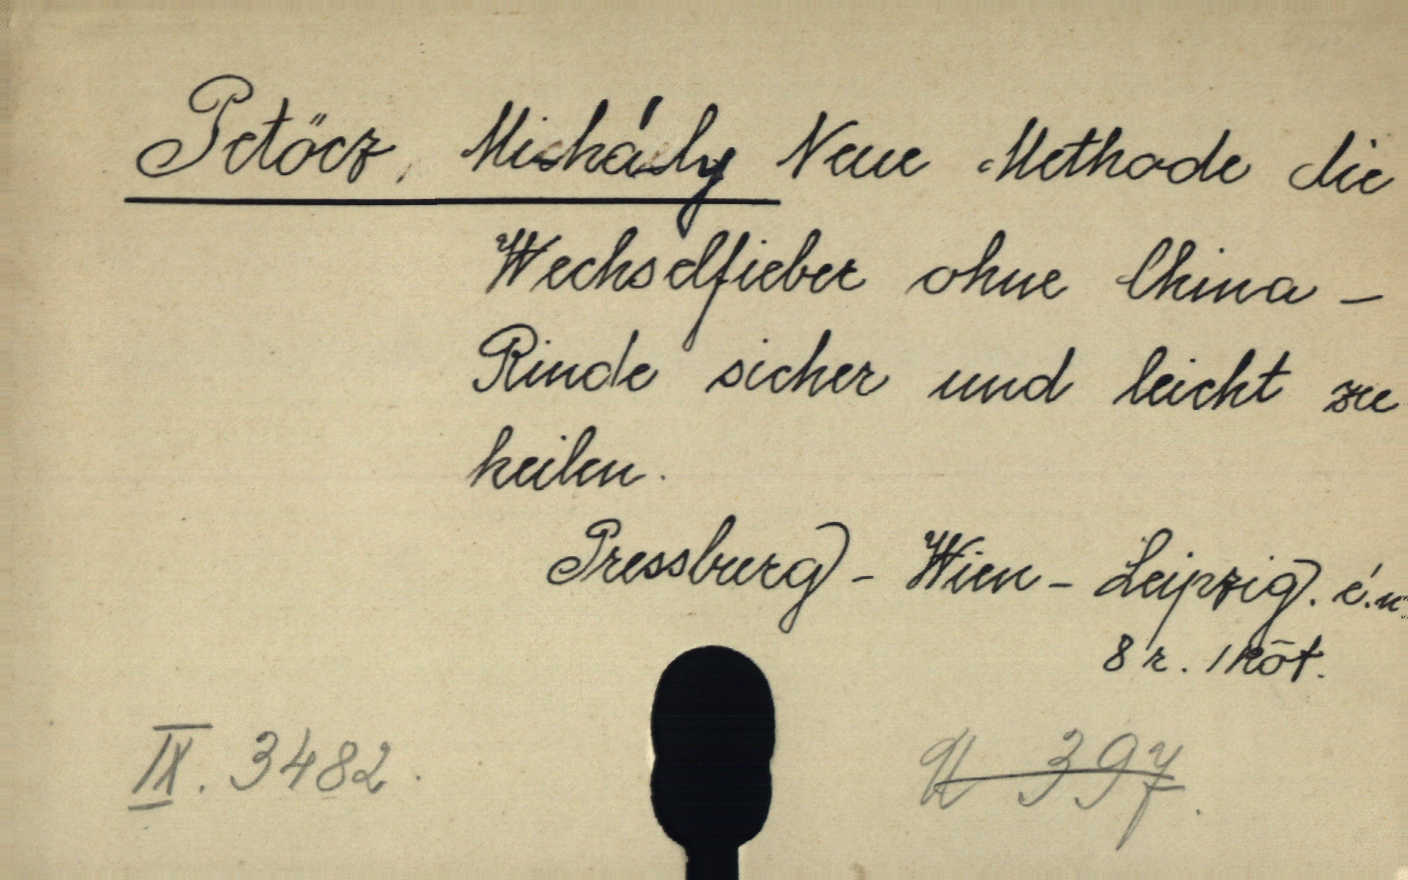 Petöcz, Mihály Neue Methode die
Wechselfieber ohne China –
Rinde sicher und leicht zu
heilen.
Pressburg – Wien – Leipzig. é.n.
8 r. 1 köt.
IX. 3482.
397.